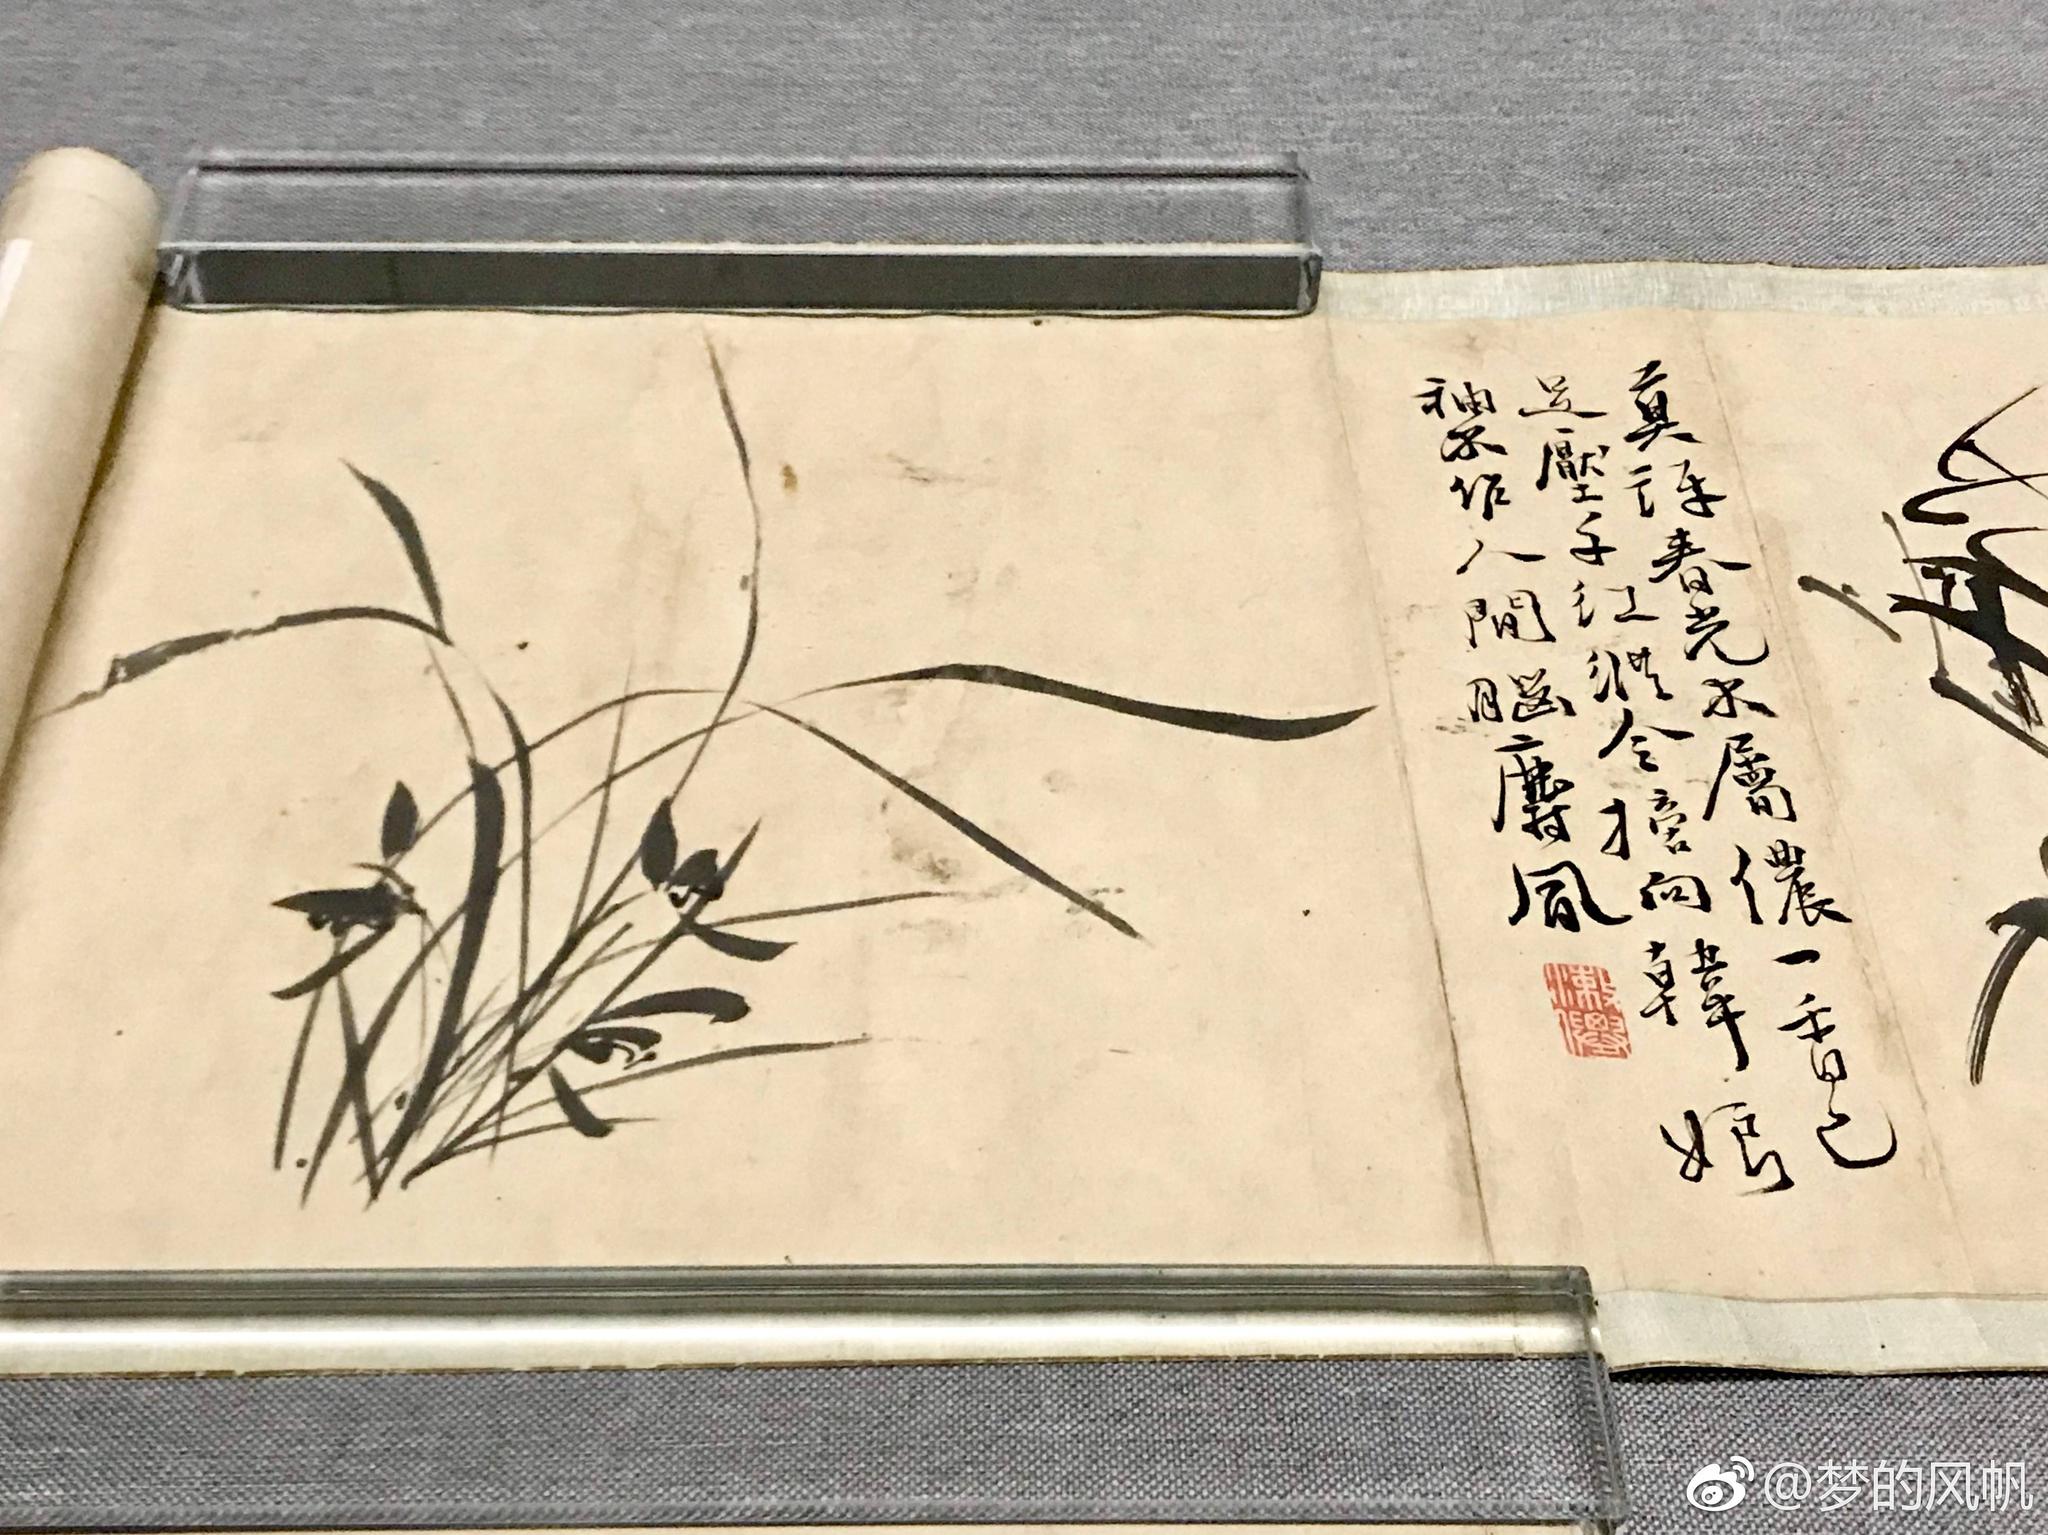 莫訝春光不屬儂一香已
足壓千紅總令摘向韓娘
袖不作人間腦麝風
@梦的风帆